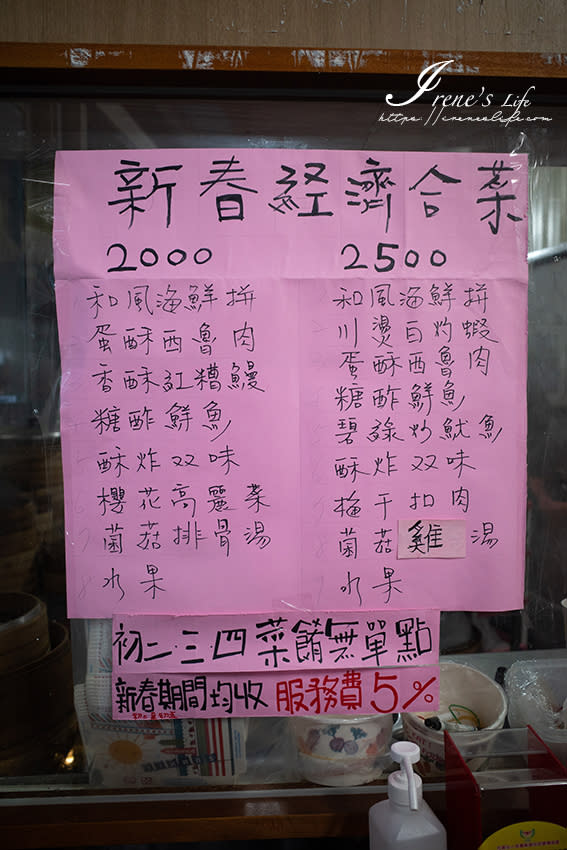 Irene's Life
https://ireneslife.com
新春經濟合菜
2000
和風海鮮拼
蛋酥西魯肉
香酥紅糟鰻
糖酢鮮魚
酥炸双味
櫻花高麗菜
菌菇排骨湯
水果
2500
和風海鮮拼
川燙白灼蝦
蛋酥西魯肉
糖酢鮮魚
碧綠炒魷魚
酥炸双味
梅干扣肉
菌菇雞湯
水果
初二.三.四菜餚無單點
新春期間均收 服務費5%